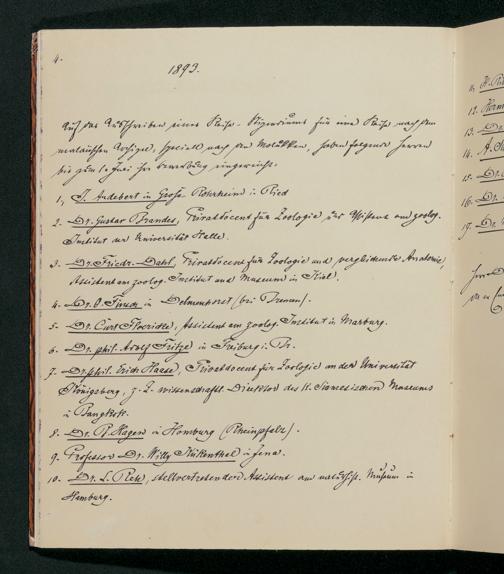 4.
1893.
Auf das Ausschreiben eines Reise-Stipendiums für eine Reise nach dem
malaiischen Archipel, speciell nach den Molukken, haben folgende Herren
bis zum 1. Juni ihre Bewerbung eingereicht.
1, J. Audebert in Gross-Rohrheim i. Ried
2. Dr. Gustav Brandes, Privatdocent für Zoologie zoolog.
Institut der Universität Halle.
3. Dr. Friedr. Dahl, Privatdocent für Zoologie und vergleichende Anatomie,
Assistent am zoolog. Institut und Museum in Kiel.
4. Dr. O. Finsch in Delmenhorst (bei Bremen).
5. Dr. Curt Floericke, Assistent am zoolog. Institut in Marburg.
6. Dr. phil. Adolf Fritze in Freiburg i. Br.
7. Dr. phil. Erich Haase, Privatdocent für Zoologie an der Universität
Königsberg, z. Z. wissenschaftl. Direktor des K. Siamesischen Museums
in Bangkok.
8. Dr. B. Hagen in Homburg (Rheinpfalz).
9. Professor Dr. Willy Kükenthal in Jena.
10. Dr. L. Reh, stellvertretender Assistent am naturhist. Museum in
Hamburg.
11. H.
12.
13. Dr.
14. A.
15. Dr.
16. Dr.
17. Dr.